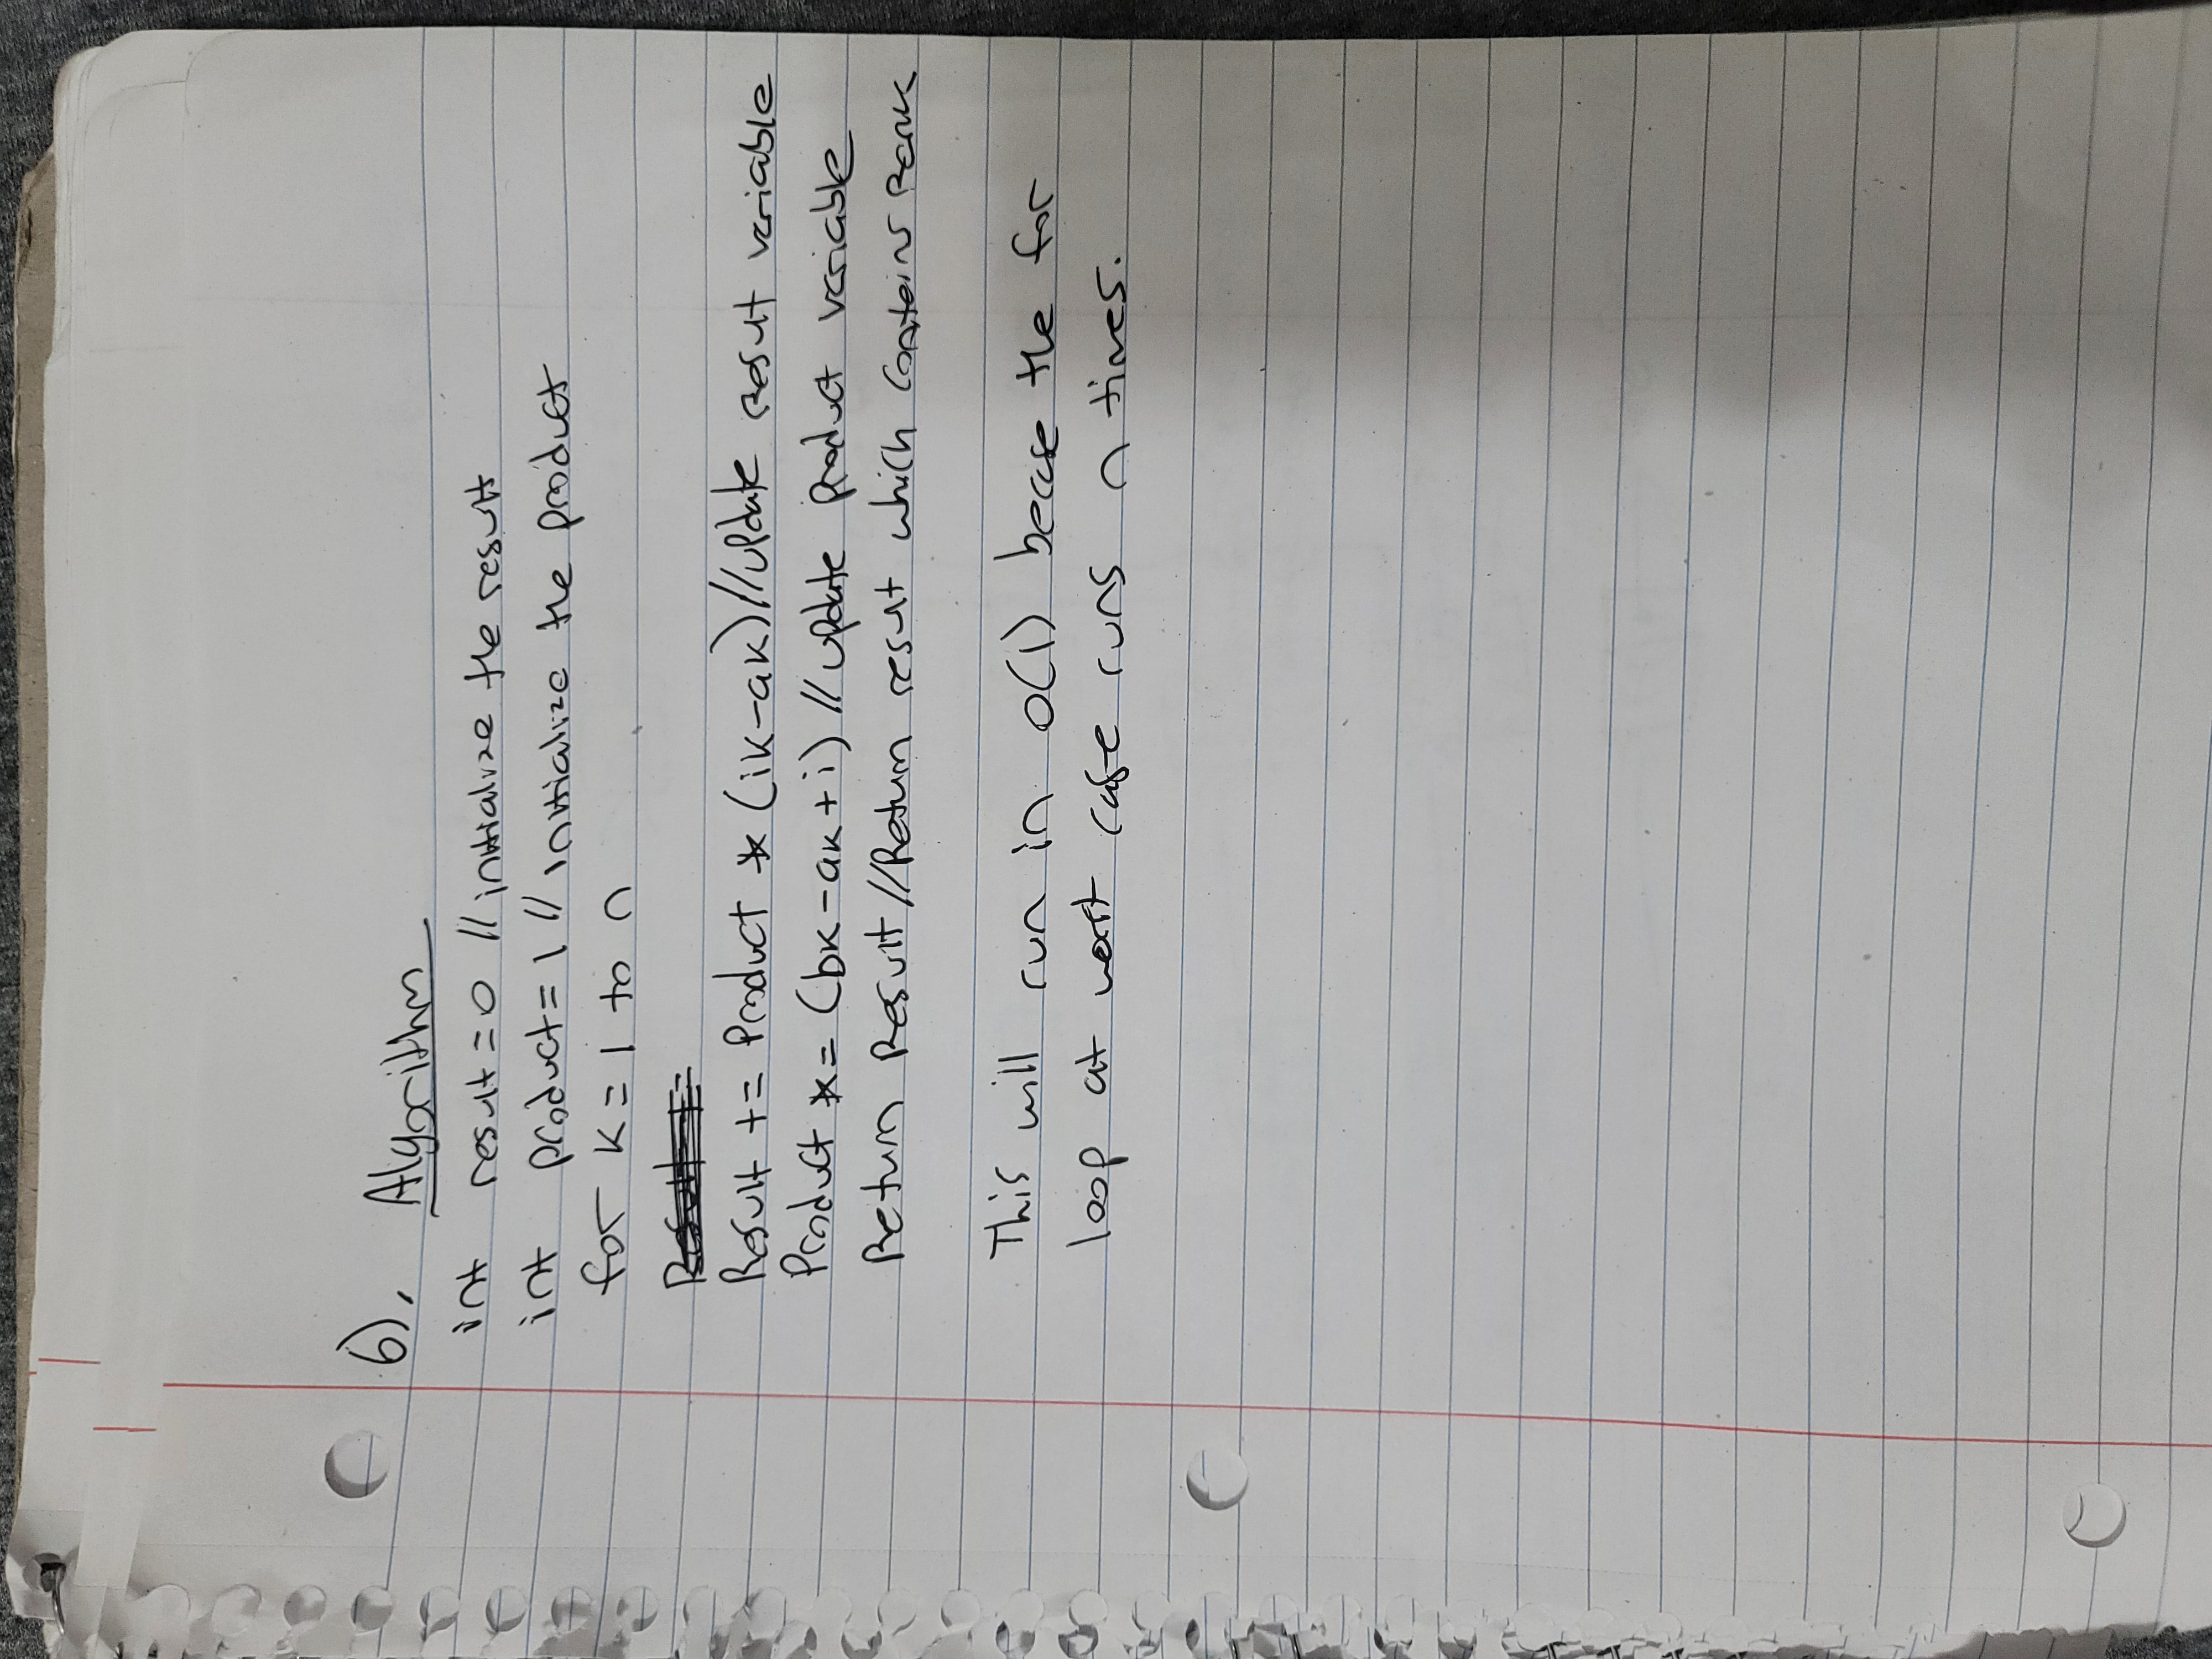 6). Algorithm
int result = 0 // initialize the result
int product = 1 // initialize the product
for k = 1 to n
Result +=
Result += Product * (ik-ak) // update result variable
Product *= (bk-ak+i) // update product variable
Return Result // Return result which contains Rank
This will run in O(1) becase the for
loop at worst case runs n times.